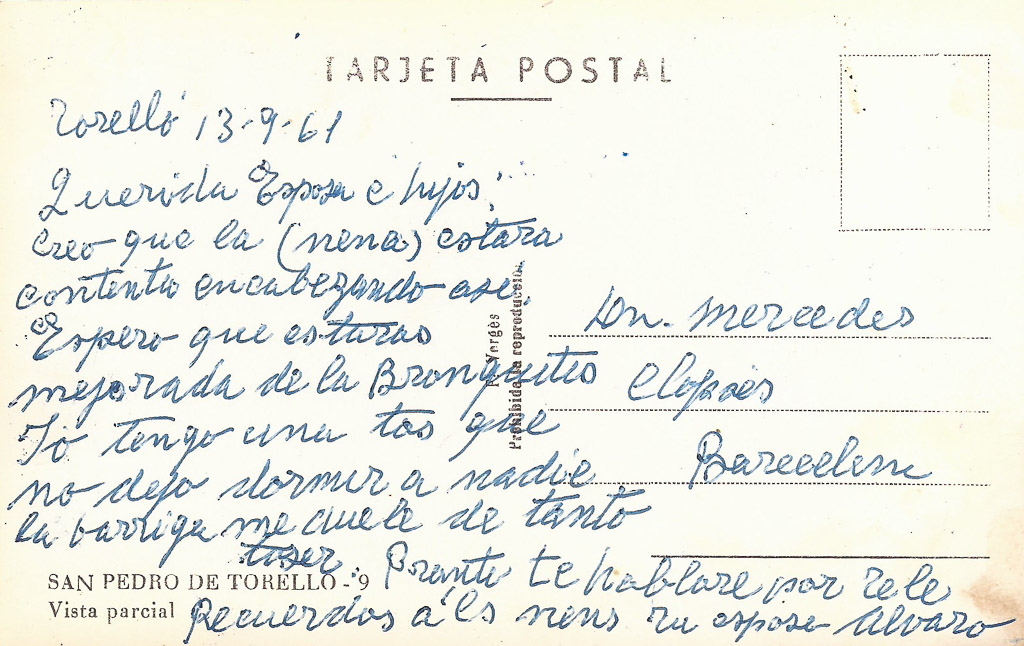 TARJETA POSTAL
Torelló 13-9-61
Querida Esposa e hijos:
Creo que la (nena) estara
contenta encabezando
Espero que estaras
mejorada de la Bronquitis
Jo tengo una tos que
no dejo dormir a nadie
la barriga me duele de tanto
toser. te hablare por tele
Recuerdos a ls nens tu esposo Alvaro
SAN PEDRO DE TORELLO - 9
Vista parcial
F. Vergés
Prohibida la reproducción
Dn. Mercedes
Clopés
Barcelona